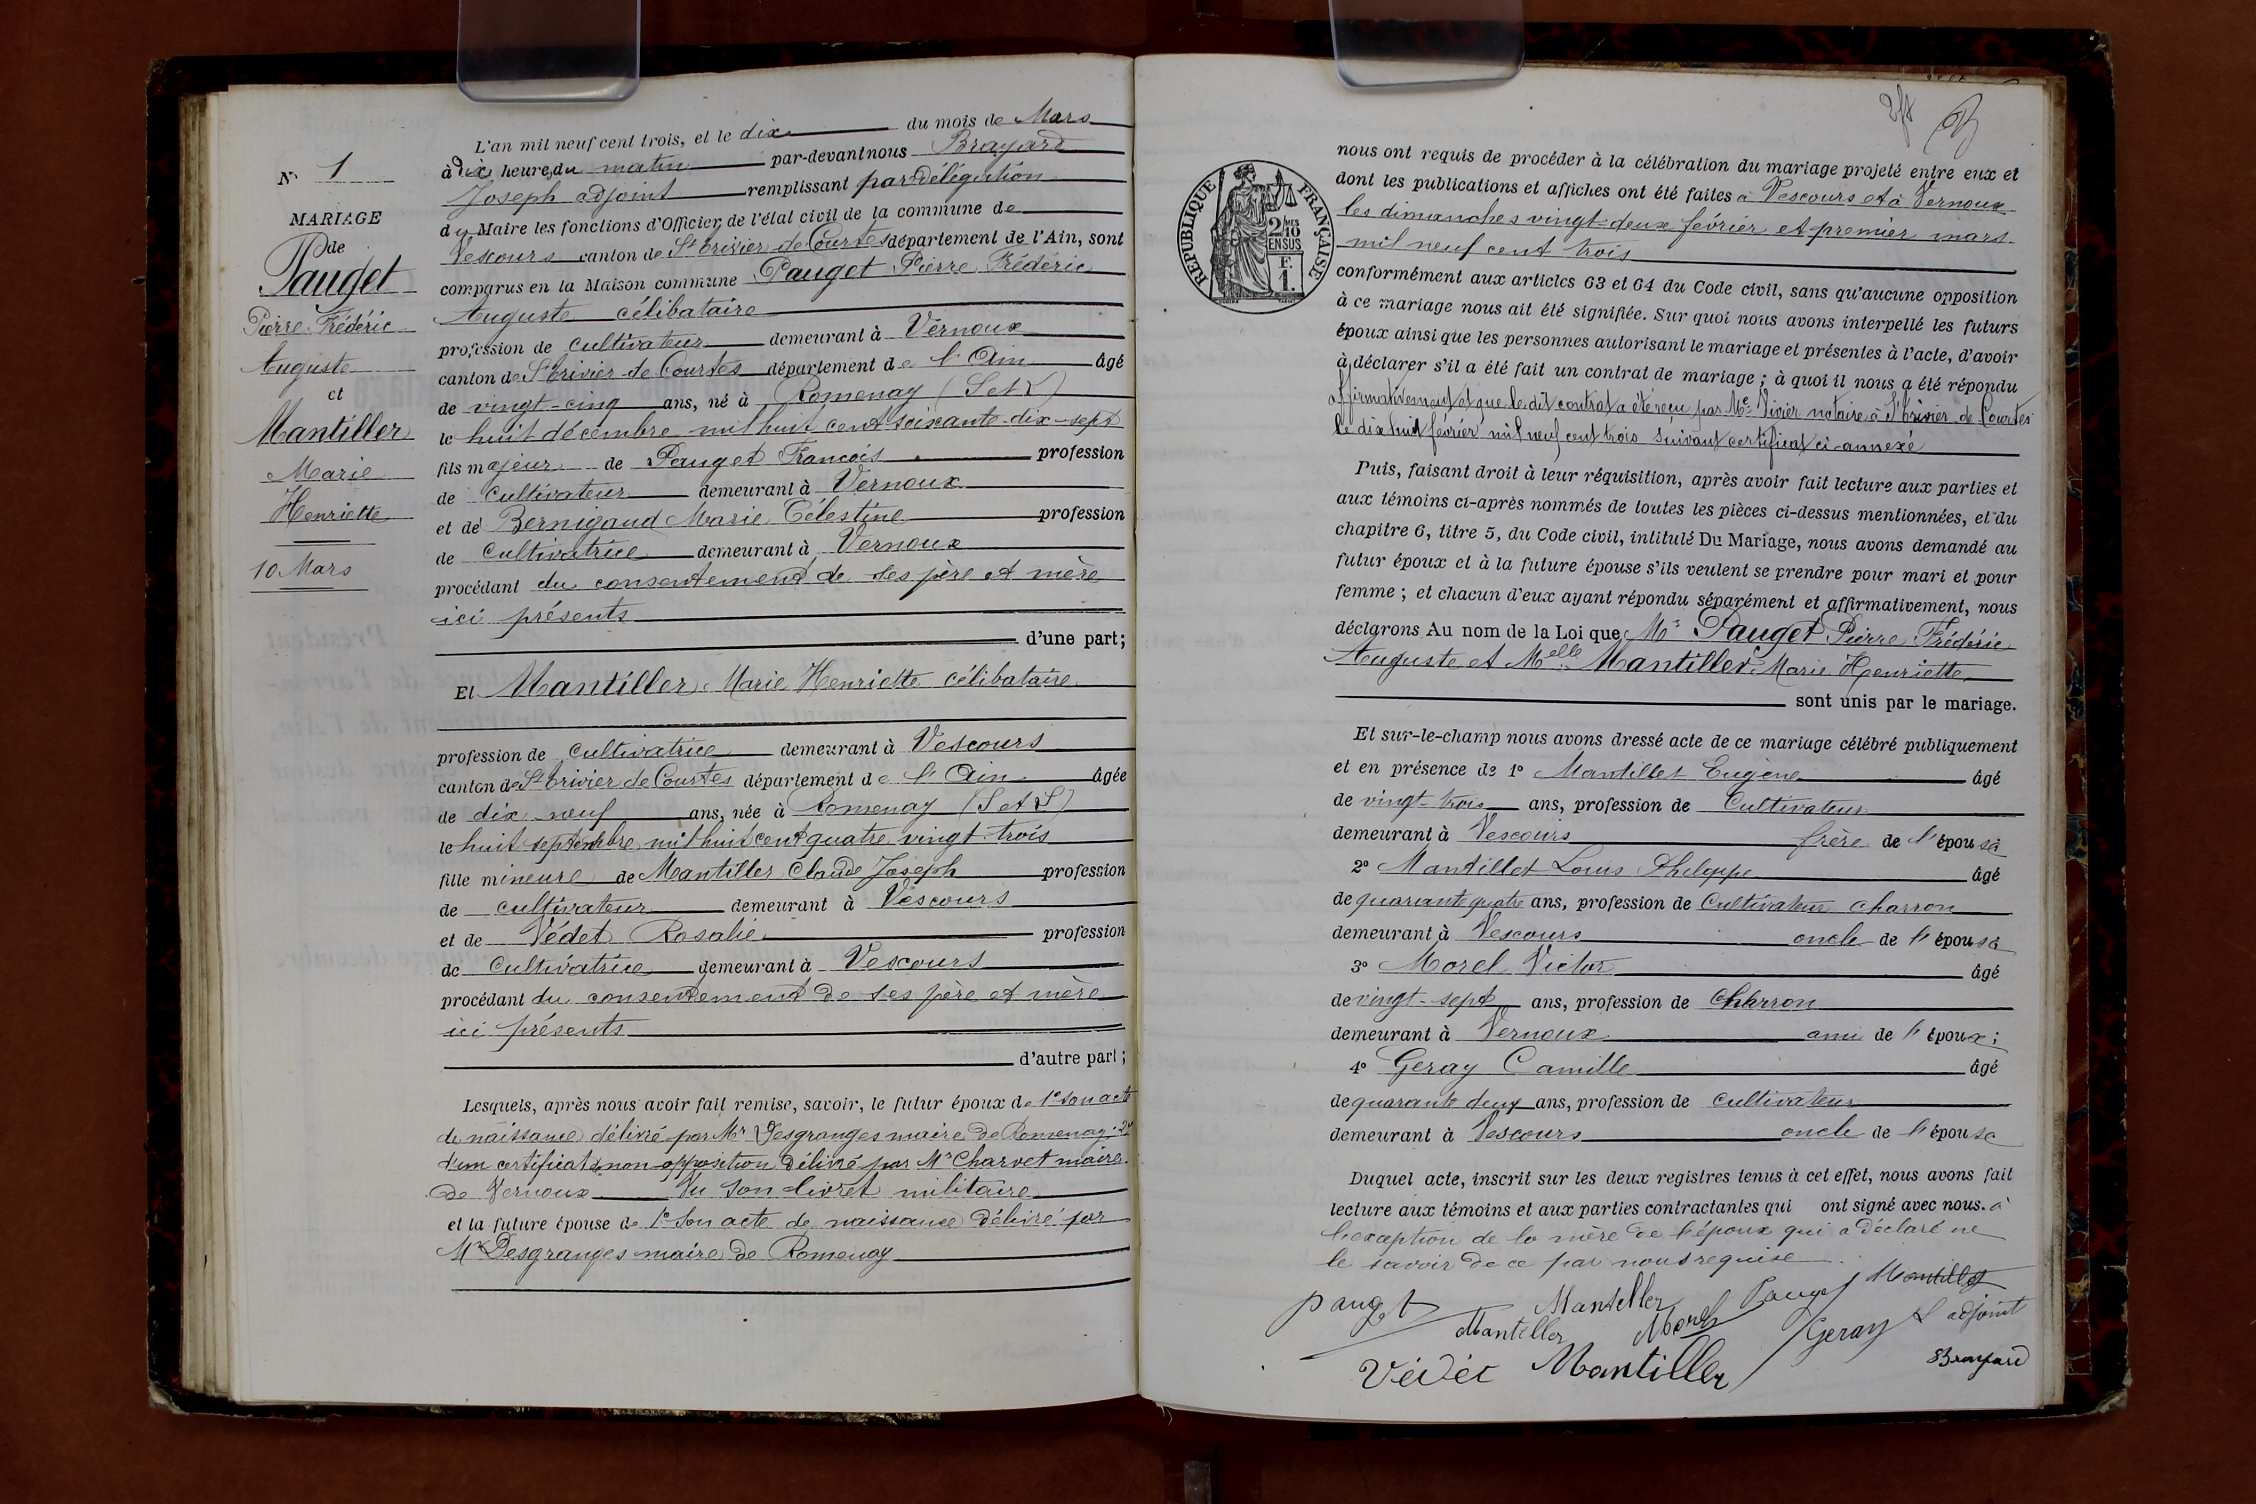 N° 1
MARIAGE
de
Pauget
Pierre Frédéric
Auguste
et
Mantiller
Marie
Henriette
10 Mars
L'an mil neuf cent trois, et le dix du mois de Mars
à dix heures du matin par-devant nous Brayard
Joseph adjoint remplissant par délégation
du Maire les fonctions d'Officier de l'état civil de la commune de
Vescours canton de St Trivier de Courtes département de l'Ain, sont
comparus en la Maison commune Pauget Pierre Frédéric
Auguste célibataire
profession de cultivateur demeurant à Vernoux
canton de St Trivier de Courtes département de l'Ain âgé
de vingt-cinq ans, né à Romenay (S et L)
le huit décembre mil huit cent soixante-dix-sept
fils majeur de Pauget François profession
de cultivateur demeurant à Vernoux
et de Bernigaud Marie Célestine profession
de cultivatrice demeurant à Vernoux
procédant du consentement de ses père et mère
ici présents
d'une part;
Et Mantiller Marie Henriette célibataire
profession de cultivatrice demeurant à Vescours
canton de St Trivier de Courtes département de l'Ain âgée
de dix neuf ans, née à Romenay (S et L)
le huit septembre mil huit cent quatre vingt trois
fille mineure de Mantiller Claude Joseph profession
de cultivateur demeurant à Vescours
et de Védet Rosalie profession
de cultivatrice demeurant à Vescours
procédant du consentement de ses père et mère
ici présents
d'autre part;
Lesquels, après nous avoir fait remise, savoir, le futur époux de 1° son acte
de naissance délivré par Mr Desgranges maire de Romenay; 2°
d'un certificat de non opposition délivré par Mr Charvet maire
de Vernoux Vu son livret militaire
et la future épouse de 1° son acte de naissance délivré par
Mr Desgranges maire de Romenay
RÉPUBLIQUE FRANÇAISE
2/10
EN SUS
F.
1.
nous ont requis de procéder à la célébration du mariage projeté entre eux et
dont les publications et affiches ont été faites à Vescours et à Vernoux
les dimanches vingt-deux février et premier mars
mil neuf cent trois
conformément aux articles 63 et 64 du Code civil, sans qu'aucune opposition
à ce mariage nous ait été signifiée. Sur quoi nous avons interpellé les futurs
époux ainsi que les personnes autorisant le mariage et présentes à l'acte, d'avoir
à déclarer s'il a été fait un contrat de mariage; à quoi il nous a été répondu
affirmativement et que le dit contrat a été reçu par Me Vivier notaire à St Trivier de Courtes
le dix huit février mil neuf cent trois suivant certificat ci-annexé
Puis, faisant droit à leur réquisition, après avoir fait lecture aux parties et
aux témoins ci-après nommés de toutes les pièces ci-dessus mentionnées, et du
chapitre 6, titre 5, du Code civil, intitulé Du Mariage, nous avons demandé au
futur époux et à la future épouse s'ils veulent se prendre pour mari et pour
femme; et chacun d'eux ayant répondu séparément et affirmativement, nous
déclarons Au nom de la Loi que Mr Pauget Pierre Frédéric
Auguste et Melle Mantiller Marie Henriette
sont unis par le mariage.
Et sur-le-champ nous avons dressé acte de ce mariage célébré publiquement
et en présence de 1° Mantillet Eugène âgé
de vingt-trois ans, profession de Cultivateur
demeurant à Vescours frère de l'épouse
2° Mantillet Louis Phelyppe âgé
de quarante quatre ans, profession de Cultivateur charron
demeurant à Vescours oncle de l'épouse
3° Morel Victor âgé
de vingt-sept ans, profession de Charron
demeurant à Vernoux ami de l'époux;
4° Geray Camille âgé
de quarante deux ans, profession de cultivateur
demeurant à Vescours oncle de l'épouse
Duquel acte, inscrit sur les deux registres tenus à cet effet, nous avons fait
lecture aux témoins et aux parties contractantes qui ont signé avec nous. à
l'exception de la mère de l'époux qui a déclaré ne
le savoir de ce par nous requise.
Pauget Mantiller Pauget Mantillet
Mantiller Morel Geray L'adjoint
Védet Mantiller Brayard